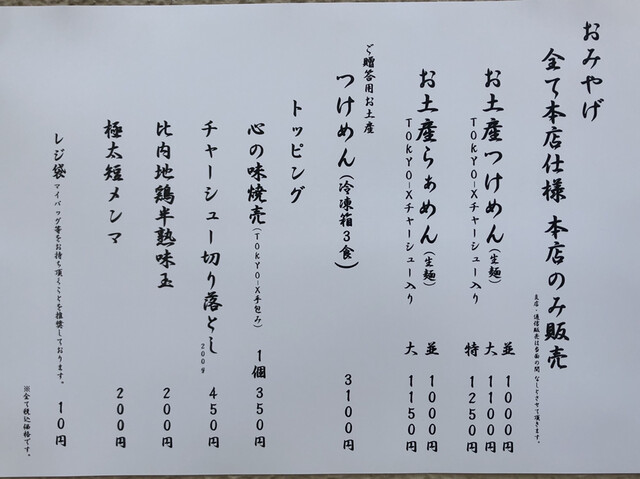 おみやげ
全て本店仕様 本店のみ販売
支店・通信販売は当面の間 なしとさせて頂きます。
お土産つけめん(生麺)
TOKYO-Xチャーシュー入り
並 1000円
大 1100円
特 1250円
お土産らぁめん(生麺)
TOKYO-Xチャーシュー入り
並 1000円
大 1150円
ご贈答用お土産
つけめん(冷凍箱3食) 3100円
トッピング
心の味焼売(TOKYO-X手包み) 1個 350円
チャーシュー切り落とし 200g 450円
比内地鶏半熟味玉 200円
極太短メンマ 200円
レジ袋 マイバッグ等をお持ち頂くことを推奨しております。 10円
※全て税込価格です。